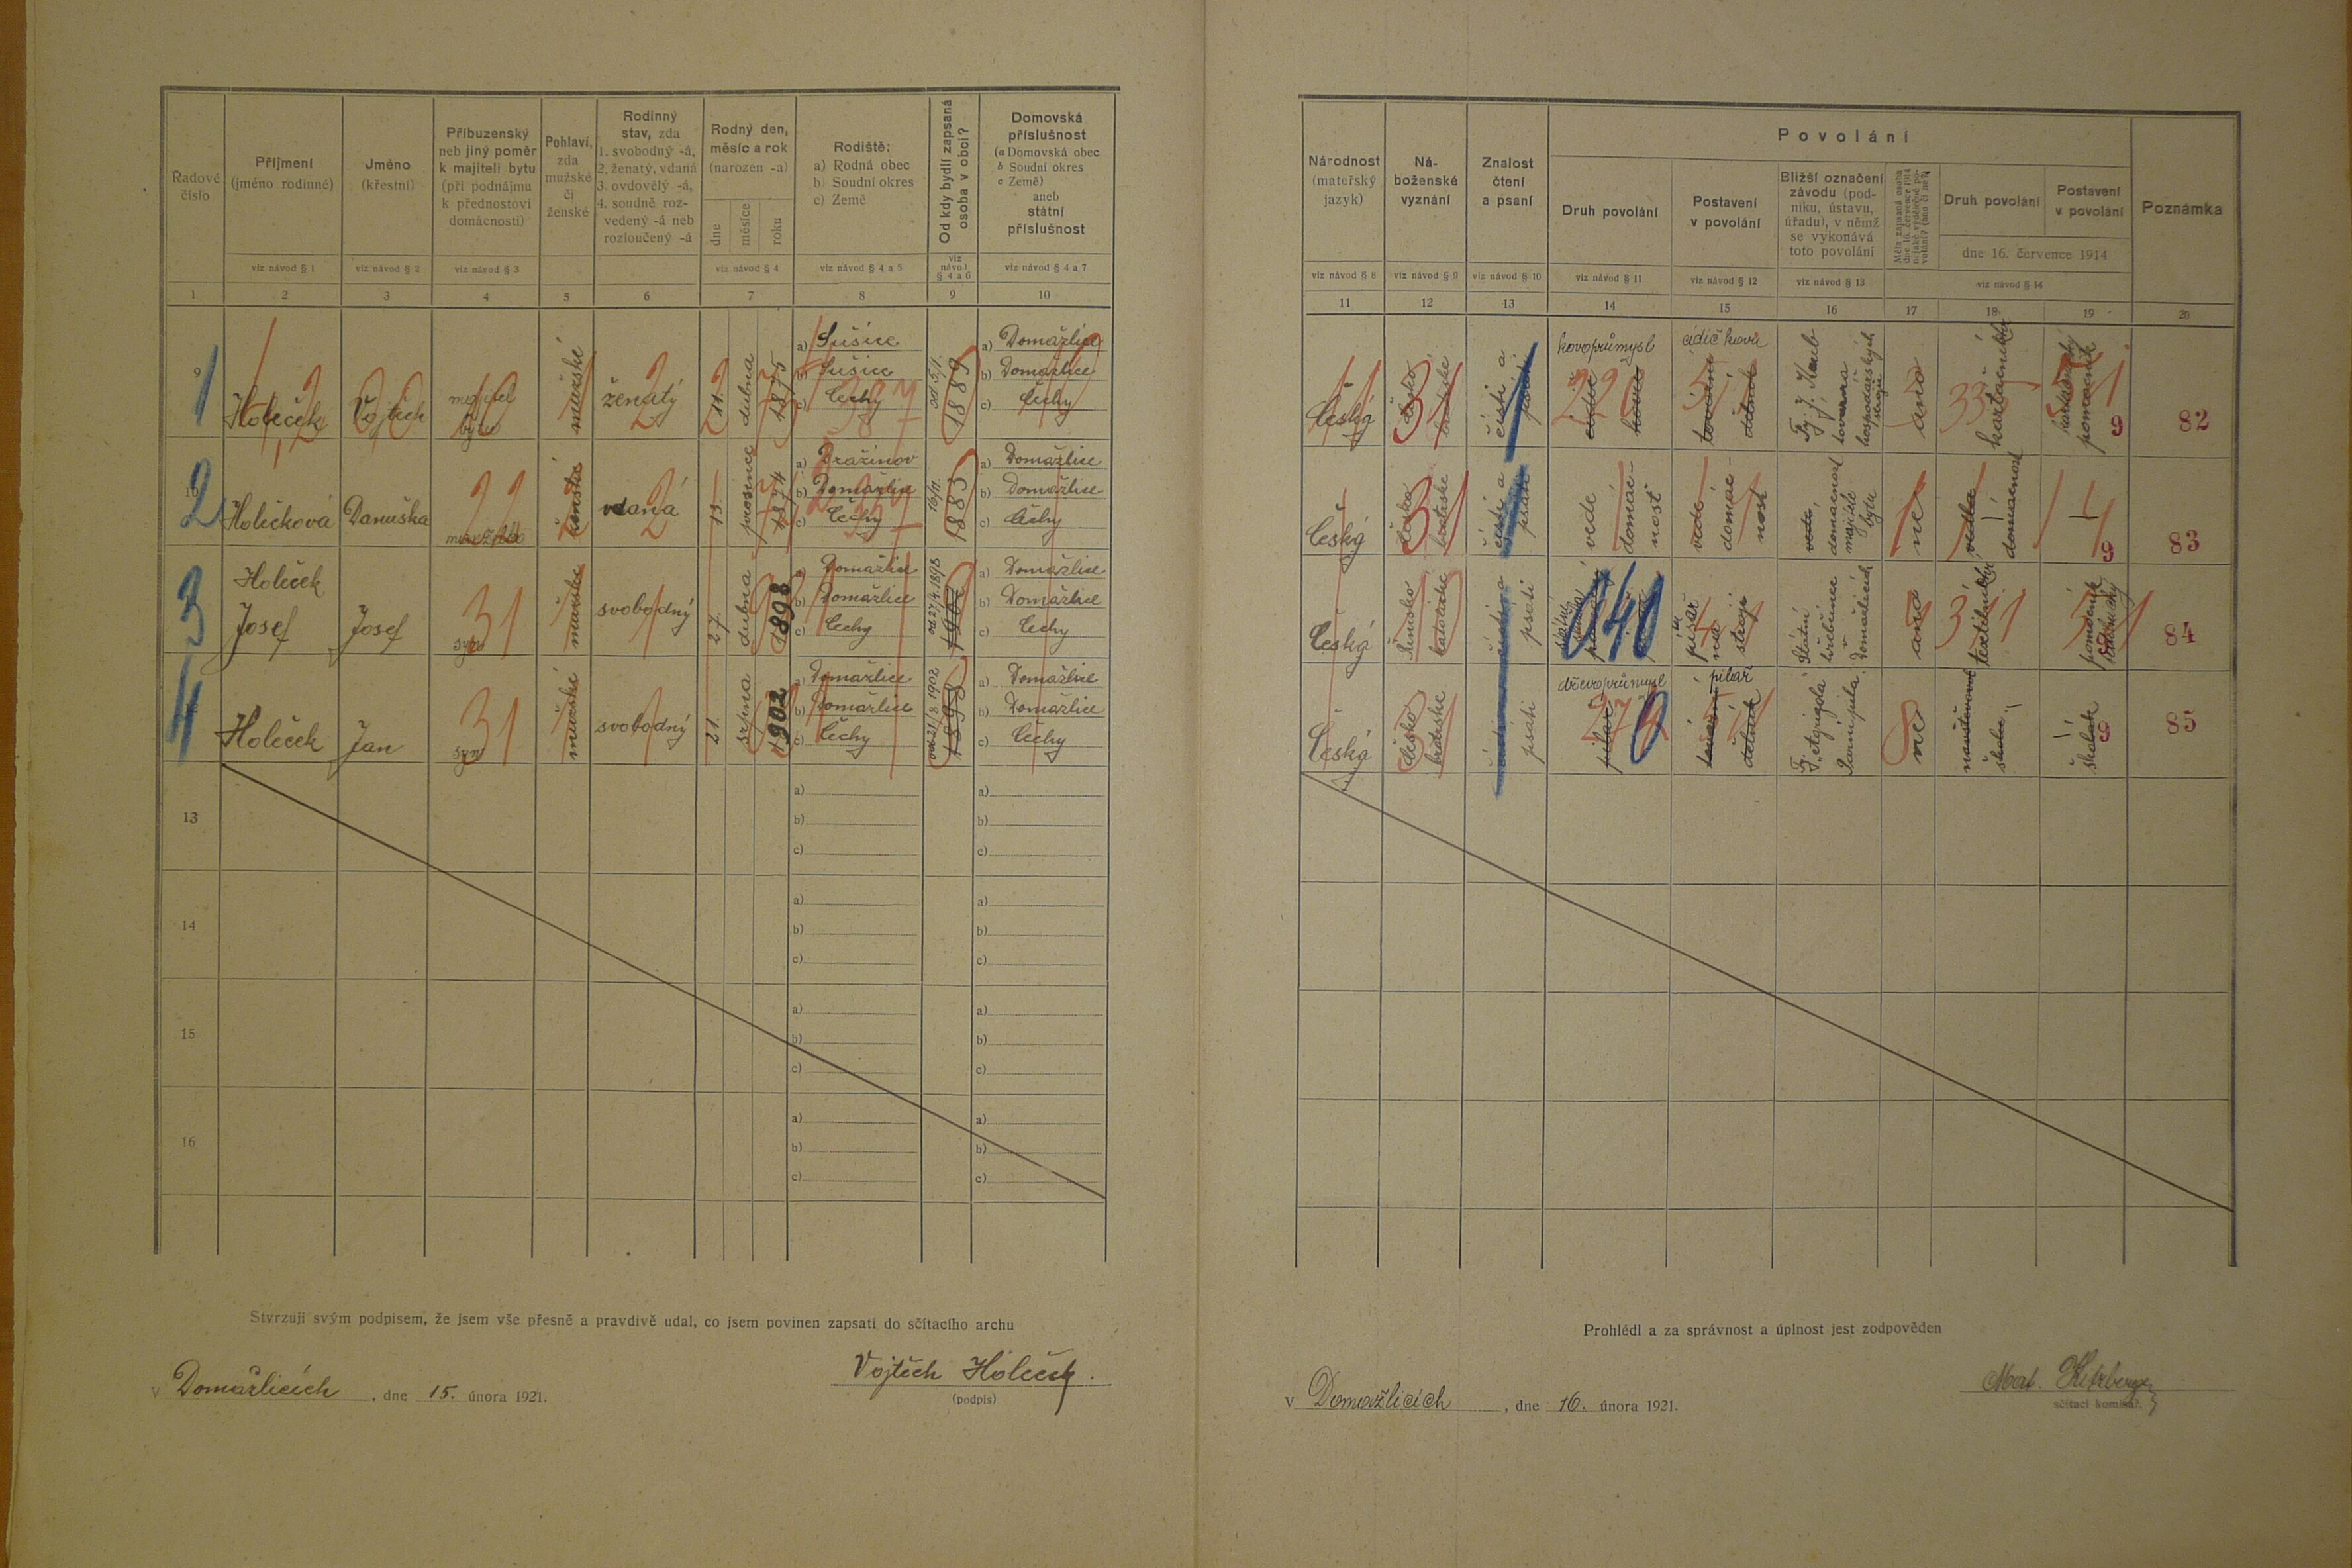 Řadové číslo
Příjmení
(jméno rodinné)
viz návod § 1
Jméno
(křestní)
viz návod § 2
Příbuzenský
neb jiný poměr
k majiteli bytu
(při podnájmu
k přednostovi
domácnosti)
viz návod § 3
Pohlaví,
zda
mužské
či
ženské
Rodinný
stav, zda
1. svobodný -á,
2. ženatý, vdaná
3. ovdovělý -á,
4. soudně roz-
vedený -á neb
rozloučený -á
Rodný den,
měsíc a rok
(narozen -a)
dne
měsíce
roku
viz návod § 4
Rodiště:
a) Rodná obec
b) Soudní okres
c) Země
viz návod § 4 a 5
Od kdy bydlí zapsaná
osoba v obci?
viz
návod
§ 4 a 6
Domovská
příslušnost
(a Domovská obec
b Soudní okres
c Země)
aneb
státní
příslušnost
viz návod § 4 a 7
1 2 3 4 5 6 7 8 9 10
9
1
Holeček
Vojtěch
majitel
bytu
mužské
ženatý
2
11.
dubna
1875
a) Sušice
b) Sušice
c) Čechy
1889
a) Domažlice
b) Domažlice
c) Čechy
10
2
Holečková
Danuška
manželka
ženské
vdaná
2
13.
prosince
1874
a) Dražinov
b) Domažlice
c) Čechy
1883
a) Domažlice
b) Domažlice
c) Čechy
3
Holeček
Josef
Josef
syn
31
mužské
svobodný
27.
dubna
1898
a) Domažlice
b) Domažlice
c) Čechy
od 27/4. 1898
1902
a) Domažlice
b) Domažlice
c) Čechy
4
Holeček
Jan
syn
31
mužské
svobodný
21.
srpna
1902
a) Domažlice
b) Domažlice
c) Čechy
od 21/8. 1902
1898
a) Domažlice
b) Domažlice
c) Čechy
13
a)
b)
c)
a)
b)
c)
14
a)
b)
c)
a)
b)
c)
15
a)
b)
c)
a)
b)
c)
16
a)
b)
c)
a)
b)
c)
Stvrzuji svým podpisem, že jsem vše přesně a pravdivě udal, co jsem povinen zapsati do sčítacího archu
V Domažlicích, dne 15. února 1921.
Vojtěch Holeček.
(podpis)
Národnost
(mateřský
jazyk)
viz návod § 8
Ná-
boženské
vyznání
viz návod § 9
Znalost
čtení
a psaní
viz návod § 10
Povolání
Druh povolání
viz návod § 11
Postavení
v povolání
viz návod § 12
Bližší označení
závodu (pod-
niku, ústavu,
úřadu), v němž
se vykonává
toto povolání
viz návod § 13
Měla zapsaná osoba
dne 16. července 1914
nějaké výdělečné po-
volání? (ano či ne?)
Druh povolání
Postavení
v povolání
dne 16. července 1914
viz návod § 14
Poznámka
11 12 13 14 15 16 17 18 19 20
Český
česko
bratrské
čísti a
psáti
kovoprůmysl
cídič
kovů
cídič kovů
tovární
dělník
Fy. J. Kaub
továrna
hospodářských
strojů
ano
kartáčnictví
pomocník
82
Český
česko
bratrské
čísti a
psáti
vede
domác-
nost
vede
domác-
nost
vede
domácnost
majitele
bytu
ne
vedla
domácnost
83
Český
Římsko
katolické
čísti a
psáti
písař
na
stroji
Státní
hřebčinec
Domažlicích
ano
textilnictví
pomocník
84
Česká
česko
bratrské
čísti a
psáti
dřevoprůmysl
pilař
pilař
tovární
dělník
Parní pila
ne
navštěvoval
školu
školák
85
Prohlédl a za správnost a úplnost jest zodpověden
V Domažlicích, dne 16. února 1921.
Mat.
sčítací komisař.